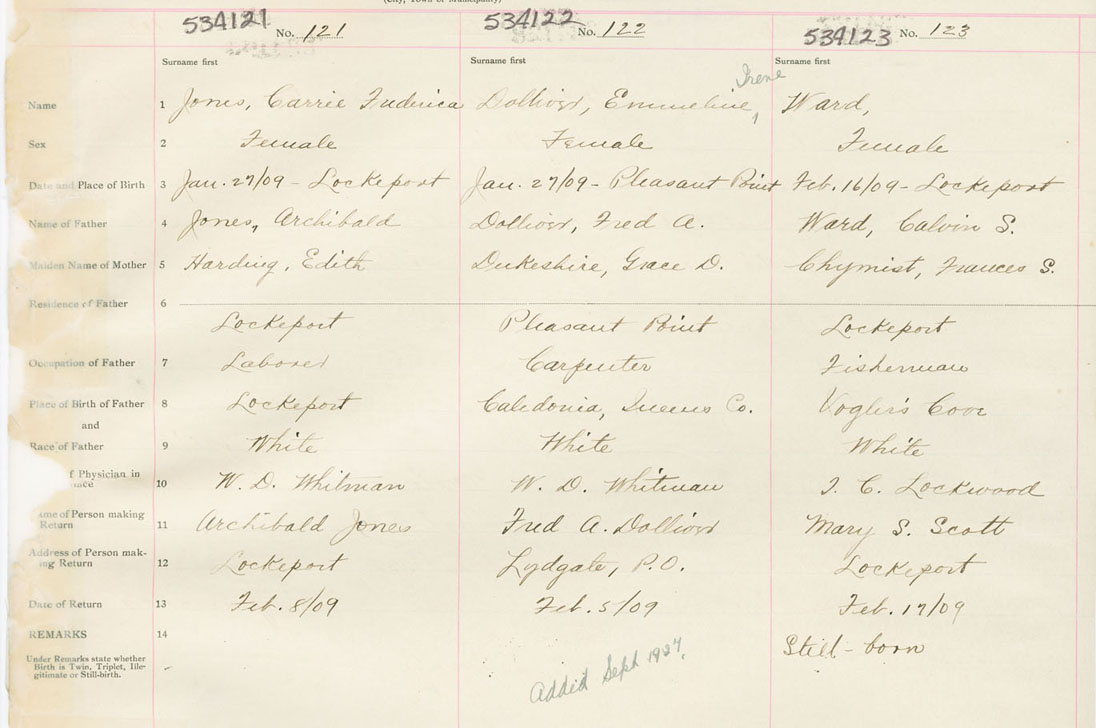 (City, Town or Municipality)
534121 No. 121 534122 No. 122 534123 No. 123
Surname first Surname first Surname first
Irene
Name 1 Jones, Carrie Fuderica Dolliver, Emmeline, Ward,
Sex 2 Female Female Female
Date and Place of Birth 3 Jan. 27/09 - Lockeport Jan. 27/09 - Pleasant Point Feb. 16/09 - Lockeport
Name of Father 4 Jones, Archibald Dolliver, Fred A. Ward, Calvin S.
Maiden Name of Mother 5 Harding, Edith Dukeshire, Grace D. Chymist, Frances S.
Residence of Father 6
Lockeport Pleasant Point Lockeport
Occupation of Father 7 Laborer Carpenter Fisherman
Place of Birth of Father 8 Lockeport Caledonia, Queens Co. Vogler's Cove
and
Race of Father 9 White White White
f Physician in
10 W. D. Whitman W. D. Whitman J. C. Lockwood
ame of Person making
Return 11 Archibald Jones Fred A. Dolliver Mary S. Scott
Address of Person mak-
ing Return 12 Lockeport Lydgate, P.O. Lockeport
Date of Return 13 Feb. 8/09 Feb. 5/09 Feb. 17/09
REMARKS 14
Still-born
Under Remarks state whether
Birth is Twin, Triplet, Ille-
gitimate or Still-birth.
Added Sept 1937.